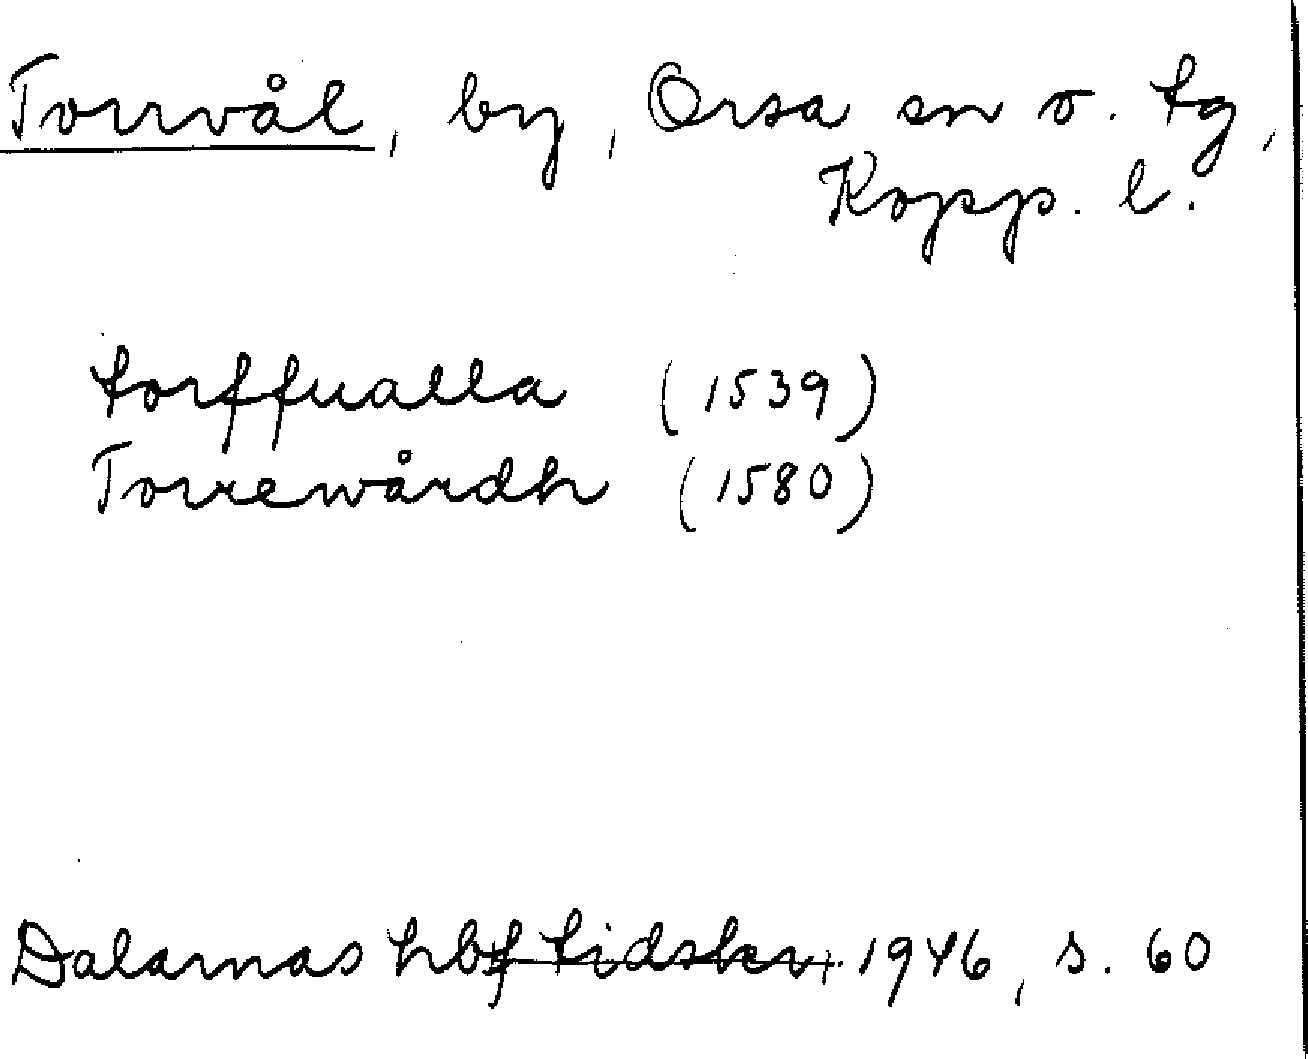 Torrvål, by, Orsa sn o. tg,
Kopp. l.
torffualla (1539)
Torrewårdh (1580)
Dalarnas hbf tidskr. 1946, s. 60